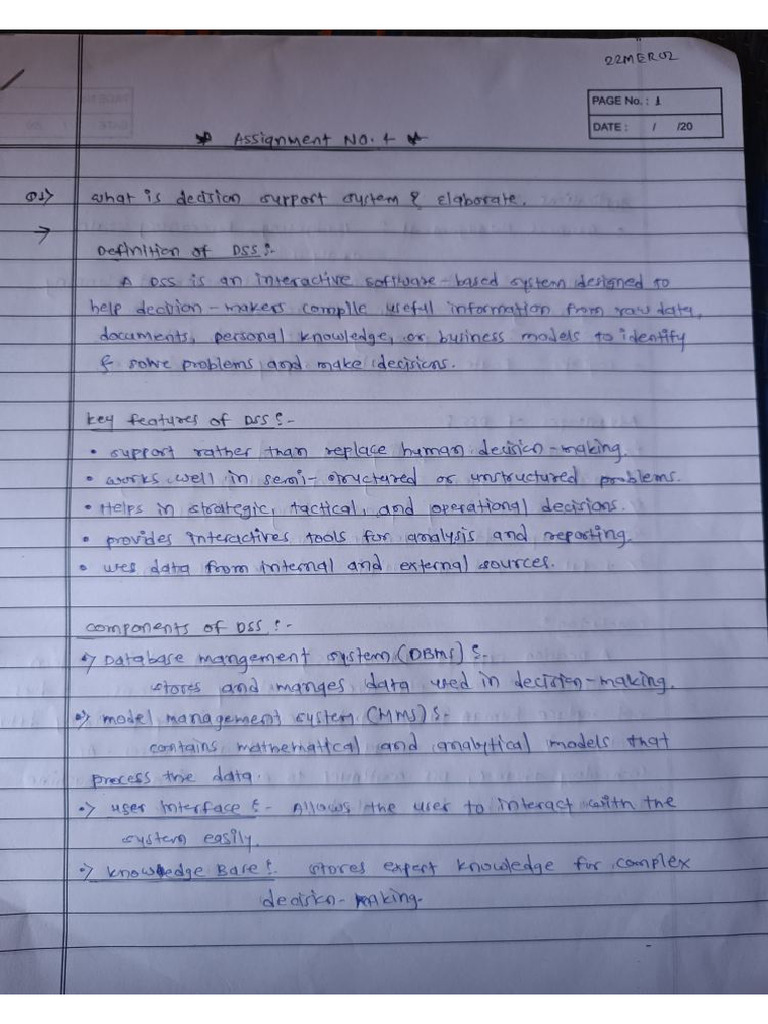 22MER02
PAGE No. : 1
DATE : / /20
* Assignment NO. 4 *
Q1) what is decision support system & Elaborate.
→
Definition of DSS :-
A DSS is an interactive software-based system designed to
help decision-makers compile useful information from raw data,
documents, personal knowledge, or business models to identify
& solve problems and make decisions.
key features of DSS :-
• support rather than replace human decision-making.
• works well in semi-structured or unstructured problems.
• Helps in strategic, tactical, and operational decisions.
• provides interactives tools for analysis and reporting.
• uses data from internal and external sources.
components of DSS :-
•) Database mangement system (DBMS) :-
stores and manges data used in decision-making.
•) model management system (MMS) :-
contains mathematical and analytical models that
process the data.
•) user interface :- Allows the user to interact with the
system easily.
•) knowledge Base :- stores expert knowledge for complex
decision-making.